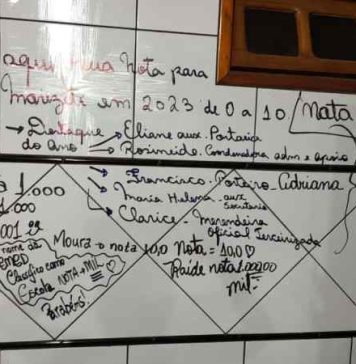 aqui sua Nota para
Marizete em 2023 de 0 a 10/Nata
→ Destaque → Eliane aux. Portaria
do ano → Rosineide. Condenadora adm e apoio
1.000 → Francisco. Porteiro Cabriana
1.000 → Maria Helena. aux secretaria
→ Clarice. Merendeira
oficial Terceirizada
001
nome da
Moura → nota 10,0 Nota = 10,0 ♡
EMED
Classifico como
Raide nota 1.000,00
Escola NOTA → MIL ♡
mil-
Parabéns!